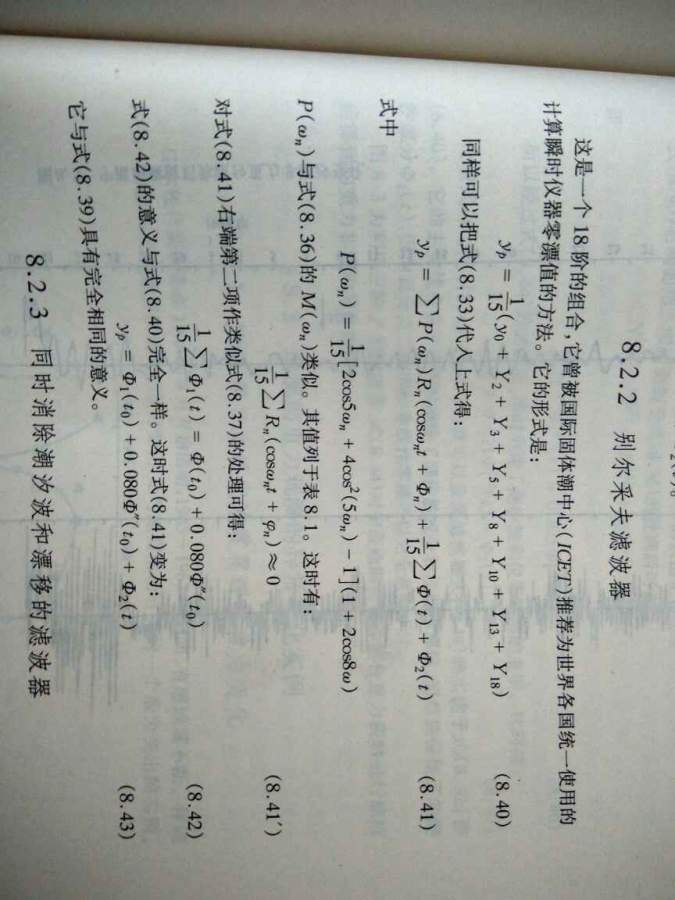 8.2.2 别尔采夫滤波器
这是一个 18 阶的组合,它曾被国际固体潮中心(ICET)推荐为世界各国统一使用的
计算瞬时仪器零漂值的方法。它的形式是:
y_p = 1/15(y_0 + Y_2 + Y_3 + Y_5 + Y_8 + Y_10 + Y_13 + Y_18) (8.40)
同样可以把式(8.33)代入上式得:
y_p = ∑P(ω_n)R_n(cosω_n t + Φ_n) + 1/15 ∑Φ(t) + Φ_2(t) (8.41)
式中
P(ω_n) = 1/15[2cos5ω_n + 4cos²(5ω_n) − 1](1 + 2cos8ω)
P(ω_n)与式(8.36)的 M(ω_n)类似。其值列于表8.1。这时有:
1/15 ∑R_n(cosω_n t + φ_n) ≈ 0 (8.41′)
对式(8.41)右端第二项作类似式(8.37)的处理可得:
1/15 ∑Φ_1(t) = Φ(t_0) + 0.080Φ″(t_0) (8.42)
式(8.42)的意义与式(8.40)完全一样。这时式(8.41)变为:
y_p = Φ_1(t_0) + 0.080Φ″(t_0) + Φ_2(t) (8.43)
它与式(8.39)具有完全相同的意义。
8.2.3 同时消除潮汐波和漂移的滤波器